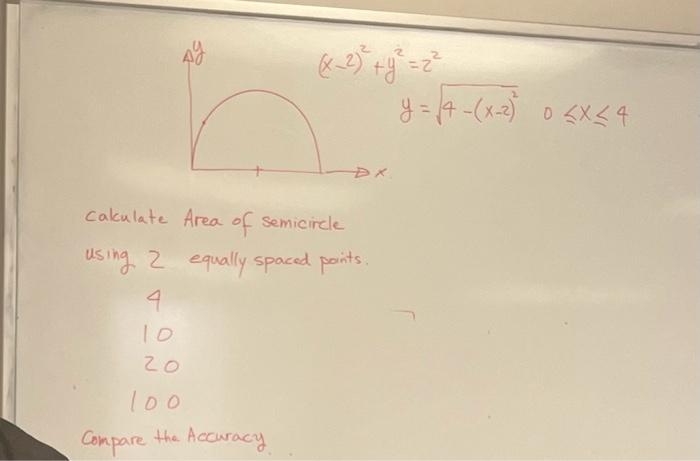 y
(x-2)² + y² = 2²
y = √4-(x-2)² 0 ≤ x ≤ 4
x
calculate Area of semicircle
using 2 equally spaced points.
4
10
20
100
Compare the Accuracy